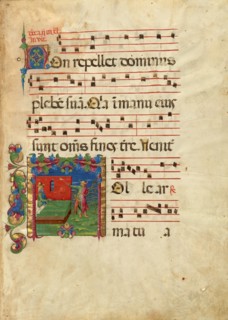 Non repellet dominus
plebē suā. Q'a ī manu eius
sunt om̄s fines t're. Venite
ol le ar
ma tu a